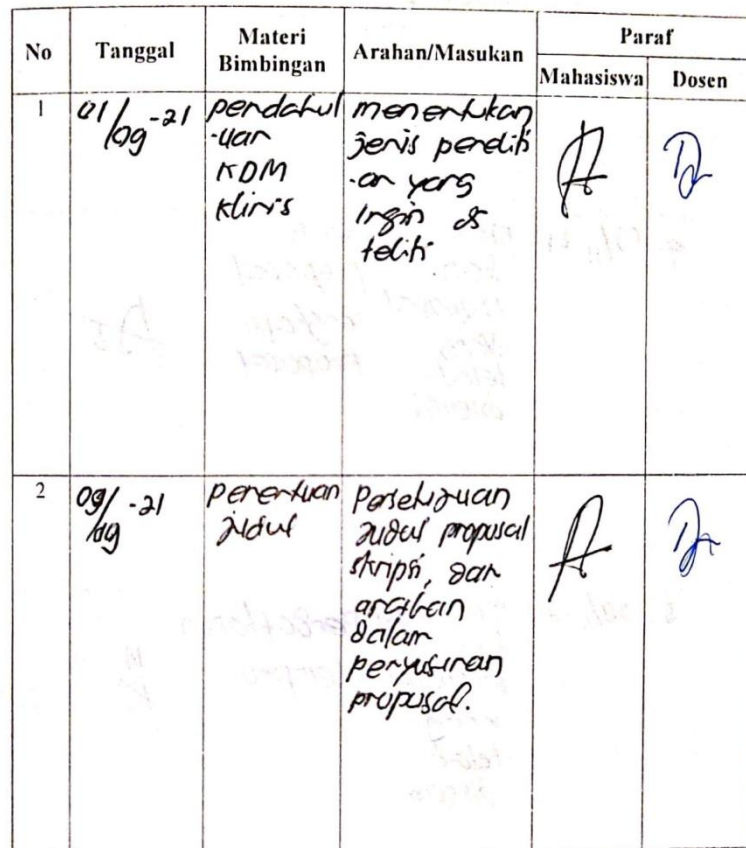 No Tanggal Materi Bimbingan Arahan/Masukan Paraf
Mahasiswa Dosen
1 01/09-21 pendahul menentukan
-uan jenis peneliti
KDM -an yang
Klinis ingin di
teliti
2 09/09-21 penentuan Persetujuan
judul judul proposal
skripsi, dan
arahan
dalam
penyusunan
proposal.